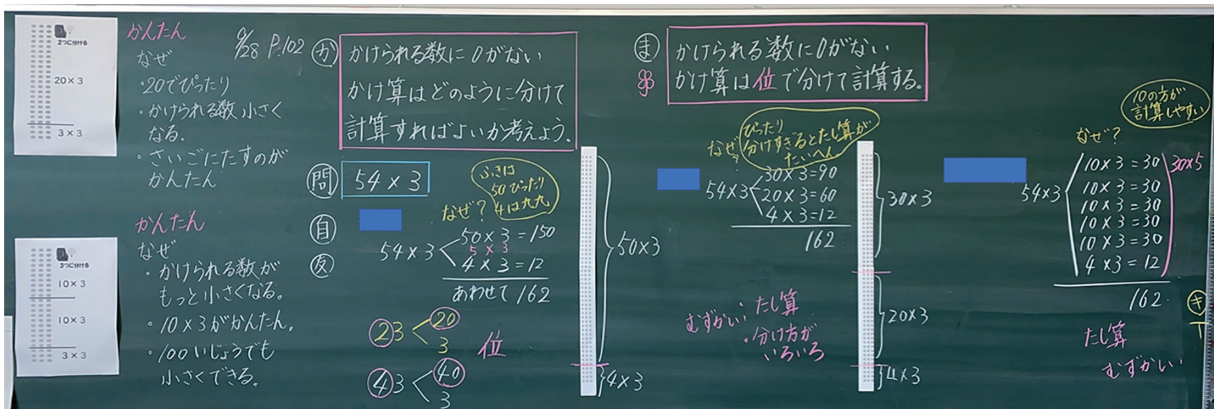 2つに分ける
20×3
3×3
かんたん
なぜ
・20でぴったり
・かけられる数小さく
なる.
・さいごにたすのが
かんたん
3つに分ける
10×3
10×3
3×3
かんたん
なぜ
・かけられる数が
もっと小さくなる。
・10×3がかんたん。
・100いじょうでも
小さくできる。
9/28 P.102
か
かけられる数に0がない
かけ算はどのように分けて
計算すればよいか考えよう。
問
54×3
自
友
なぜ?
50ぴったり
4は九九
54×3
50×3=150
5×3
4×3=12
あわせて162
23
20
3
43
40
3
位
50×3
4×3
ま
かけられる数に0がない
かけ算は位で分けて計算する。
なぜ?
ぴったり
分けすぎるとたし算が
たいへん
54×3
30×3=90
20×3=60
4×3=12
162
むずかい:たし算
・分け方が
いろいろ
30×3
20×3
4×3
10の方が
計算しやすい
なぜ?
54×3
10×3=30
10×3=30
10×3=30
10×3=30
10×3=30
4×3=12
30×5
162
たし算
むずかしい
キ